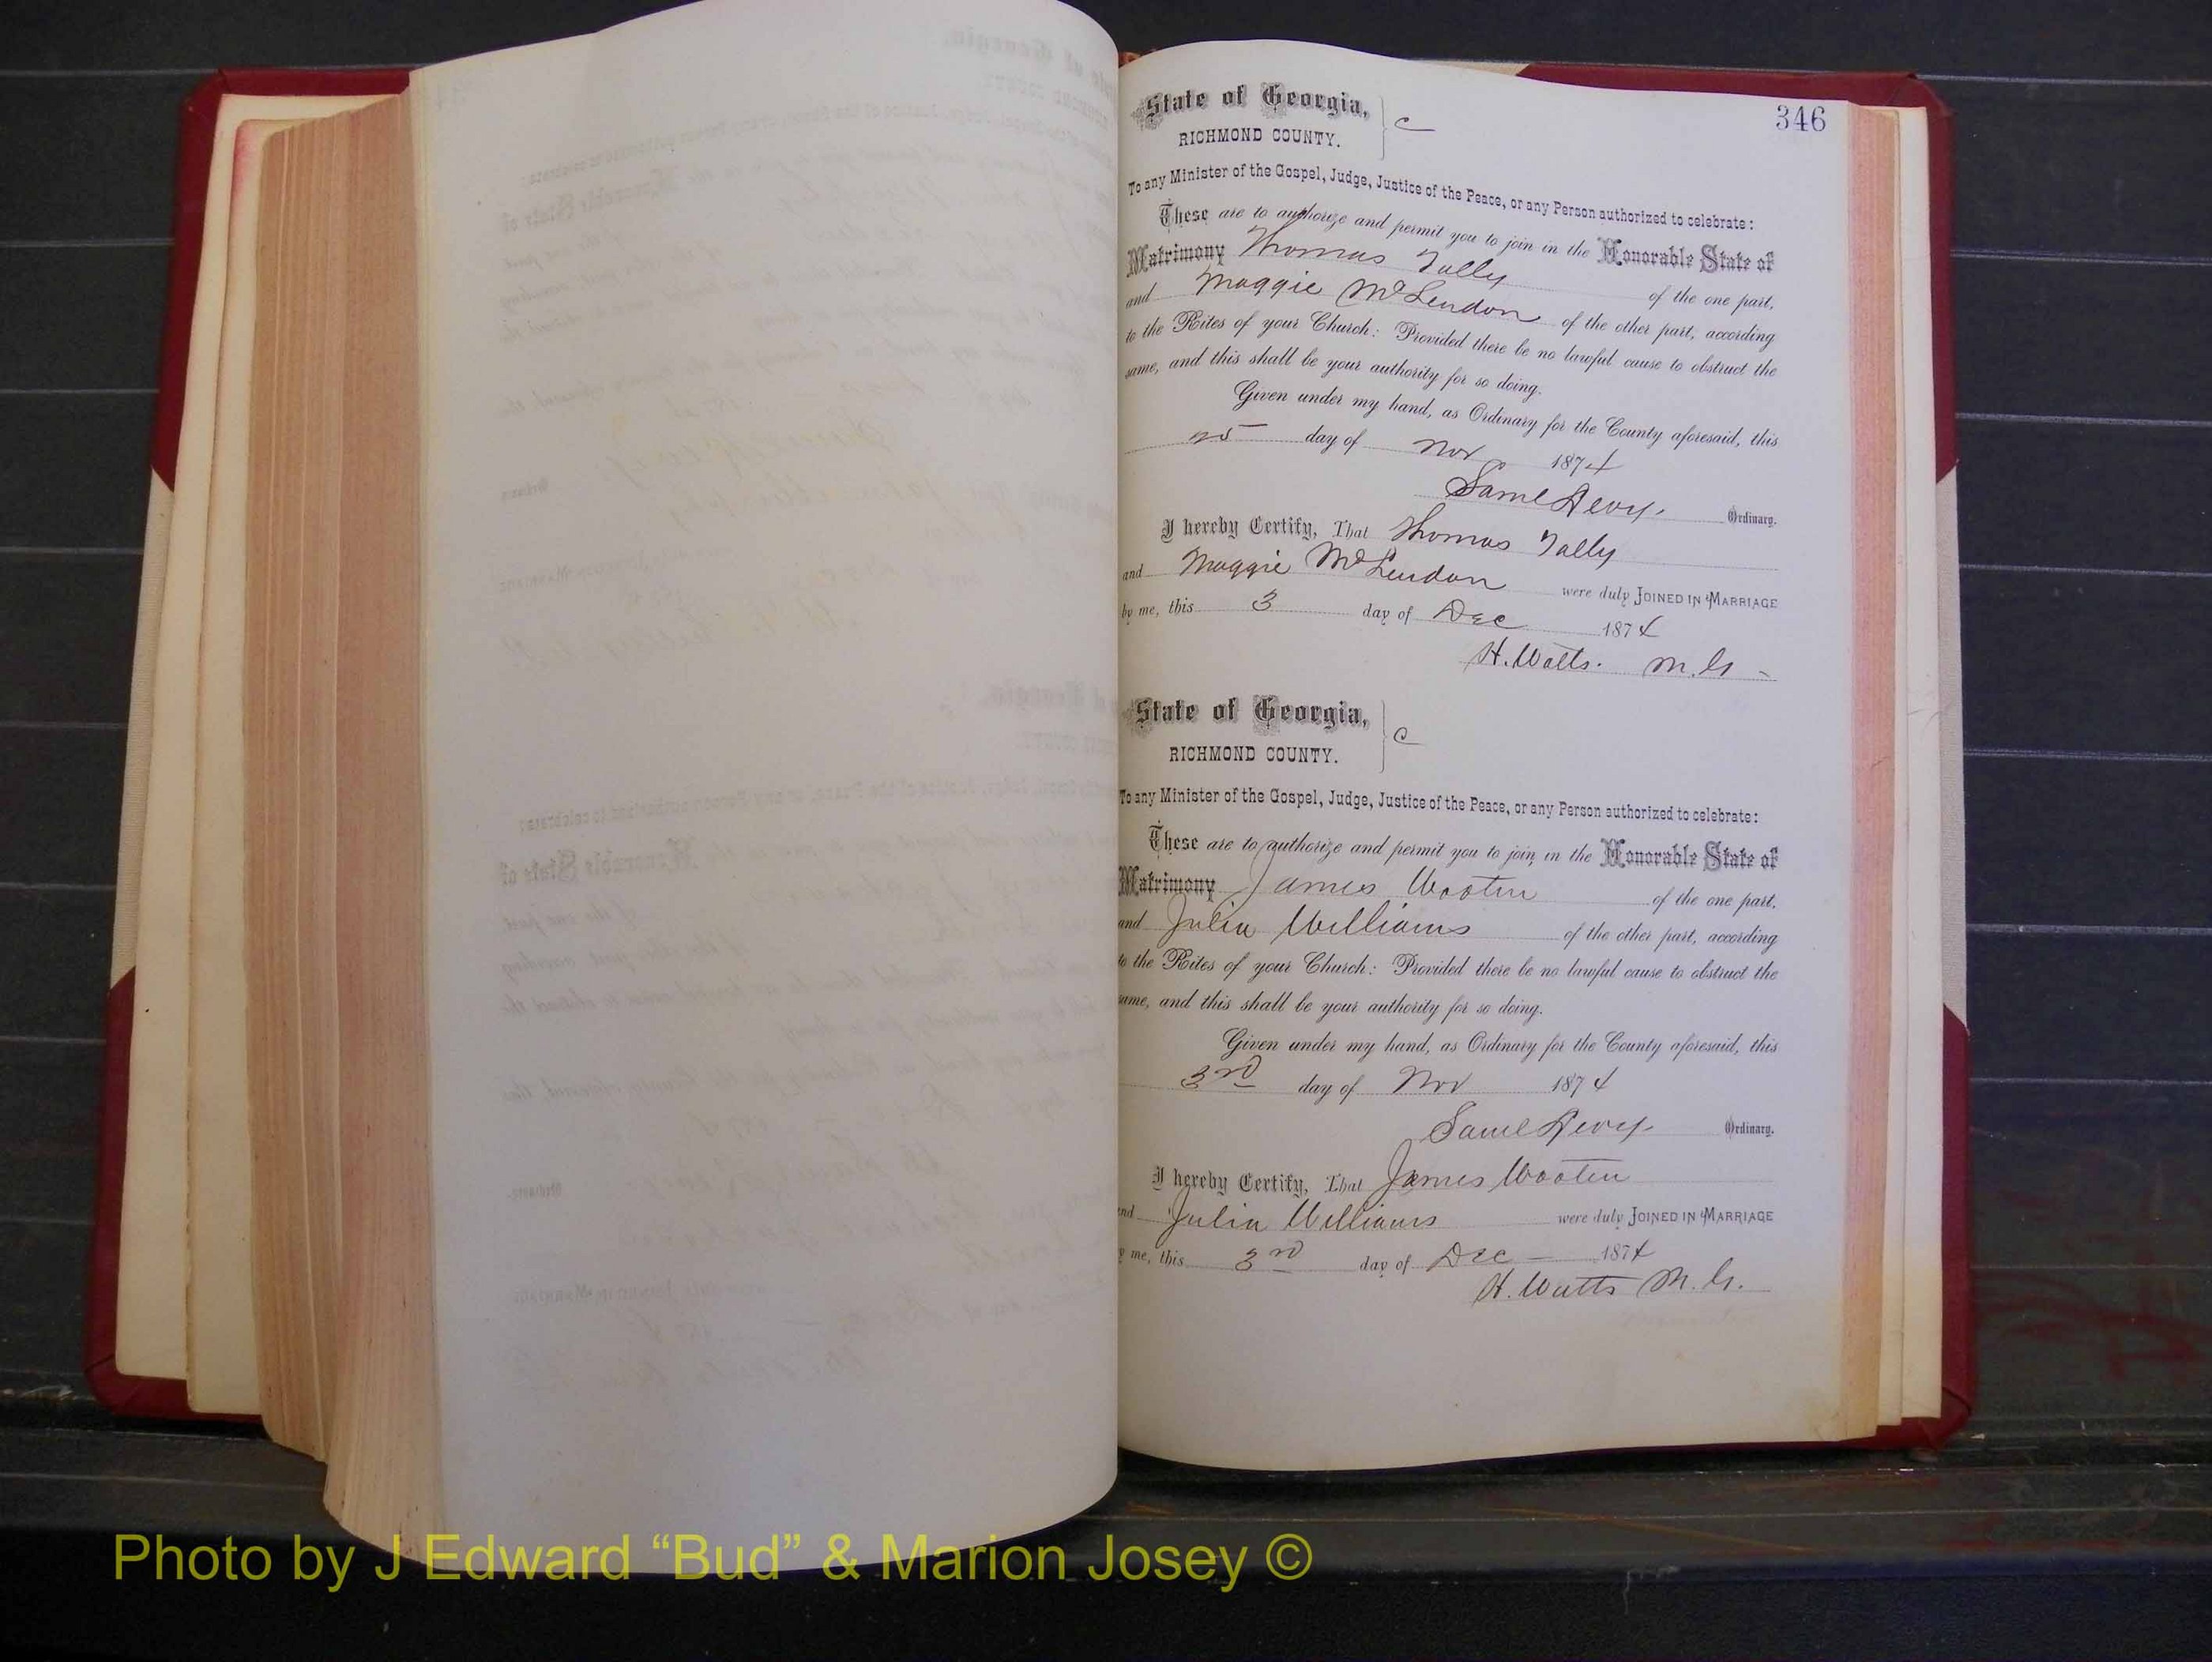 346
State of Georgia, } c
RICHMOND COUNTY.
To any Minister of the Gospel, Judge, Justice of the Peace, or any Person authorized to celebrate:
These are to authorize and permit you to join in the Honorable State of
Matrimony Thomas Tally of the one part,
and Maggie McLendon of the other part, according
to the Rites of your Church: Provided there be no lawful cause to obstruct the
same, and this shall be your authority for so doing.
Given under my hand, as Ordinary for the County aforesaid, this
25 day of Nov 1874
Saml Levy. Ordinary.
I hereby Certify, That Thomas Tally
and Maggie McLendon were duly JOINED IN MARRIAGE
by me, this 3 day of Dec 1874
H. Watts. M.G
State of Georgia, } c
RICHMOND COUNTY.
To any Minister of the Gospel, Judge, Justice of the Peace, or any Person authorized to celebrate:
These are to authorize and permit you to join in the Honorable State of
Matrimony James Wooten of the one part,
and Julia Williams of the other part, according
to the Rites of your Church: Provided there be no lawful cause to obstruct the
same, and this shall be your authority for so doing.
Given under my hand, as Ordinary for the County aforesaid, this
3rd day of Nov 1874
Saml Levy. Ordinary.
I hereby Certify, That James Wooten
and Julia Williams were duly JOINED IN MARRIAGE
by me, this 3rd day of Dec 1874
H. Watts M.G.
Photo by J Edward “Bud” & Marion Josey ©